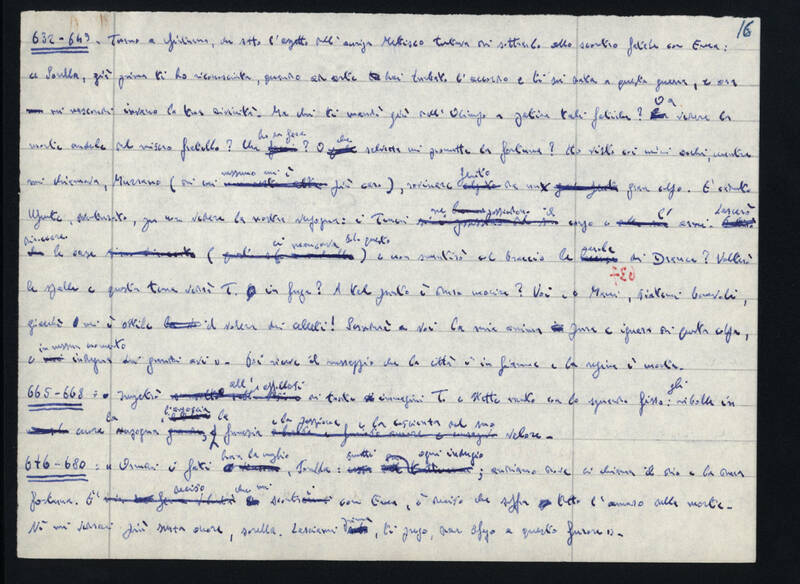 16
632-649. Turno a Giuturna, che sotto l'aspetto dell'auriga Metisco tentava di sottrarlo allo scontro fatale con Enea:
« Sorella, già prima ti ho riconosciuta, quando ad arte hai turbato l'accordo e ti sei data a questa guerra, e ora
mi nascondi invano la tua divinità. Ma chi ti mandò giù dall'Olimpo a patire tali fatiche? O a vedere la
morte crudele del misero fratello? Che ho da fare? O che salvezza mi promette la fortuna? Ho visto coi miei occhi, mentre
mi chiamava, Murrano (di cui nessuno mi è più caro), rovinare ferito da un gran colpo. È caduto
Ufente, sventurato, per non vedere la nostra vergogna: i Teucri possiedono il corpo e l' armi. Lascerò
distruggere le case (ci mancava solo questo) e non smentirò col braccio le parole di Drance? Volterò
le spalle e questa terra vedrà T. in fuga? A tal punto è duro morire? Voi, o Mani, siatemi benevoli,
giacché mi è ostile il volere dei celesti! Scenderò a voi la mia anima pura e ignara di questa colpa,
in nessun momento indegno dei grandi avi ». Poi riceve il messaggio che la città è in fiamme e la regina è morta.
665-668: « Turno all' affollarsi di tante immagini T. e stette muto con lo sguardo fisso: gli ribolle in
cuore la vergogna, la furia e la passione e la coscienza del suo valore.
676-680: « Ormai i fati hanno la meglio, sorella: ogni indugio; andiamo dove ci chiama il dio e la dura
fortuna. È deciso che mi scontri con Enea, è deciso che soffra tutto l'amaro della morte.
Né mi vedrai più senza onore, sorella. Lasciami prima, ti prego, dare sfogo a questo furore ».